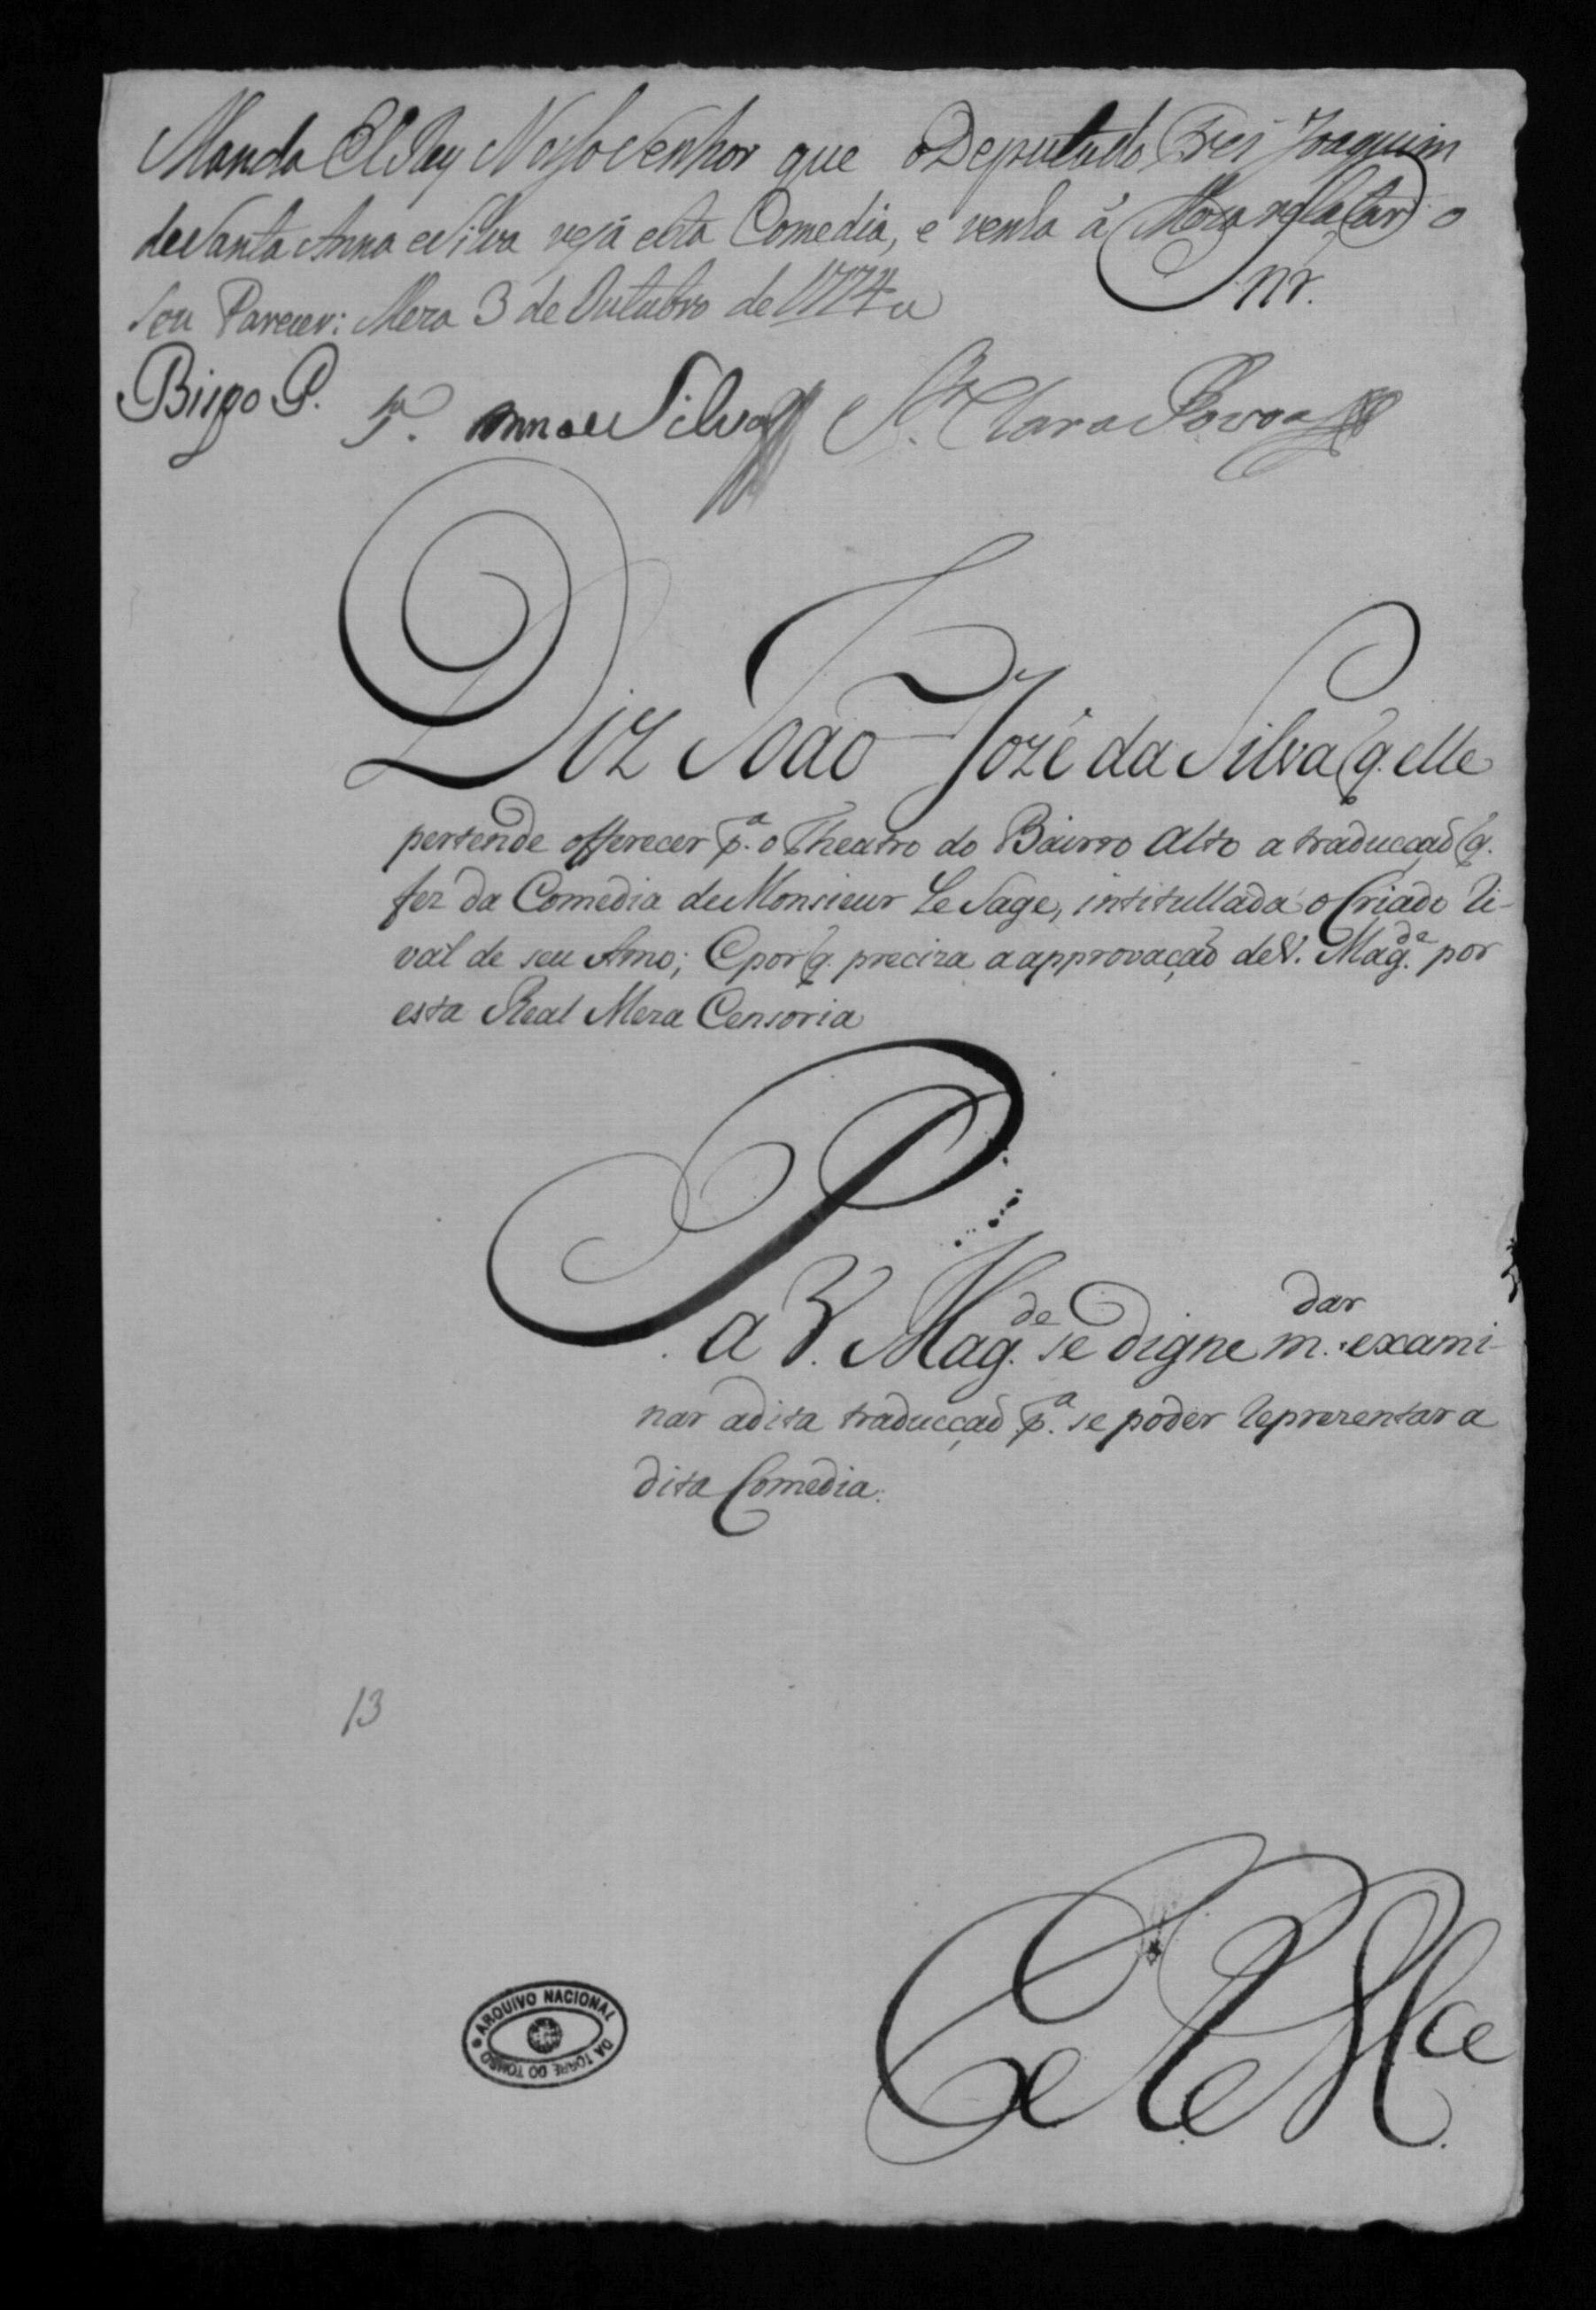 Manda ElRey Nosso Senhor que o Deputado Frei Joaquim
de Santa Anna e Silva veja esta Comedia, e venha á Meza relatar o
Snr.
seu Parecer: Meza 3 de Outubro de 1774
Bispo P. Sta. Anna e Silva Sta. Clara Povoa
Diz João Jozé da Silva q. elle
pertende offerecer pª. o Theatro do Bairro Alto a traducçaõ q.
fez da Comedia de Monsieur Le Sage, intitullada o Criado Ri-
val de seu Amo; E por q. preciza a approvaçaõ de V. Magde. por
esta Real Meza Censoria
P
a V. Magde. se digne mdar. exami-
nar a dita traducçaõ pª. se poder Reprezentar a
dita Comedia.
13
ARQUIVO NACIONAL DA TORRE DO TOMBO
E R Mce